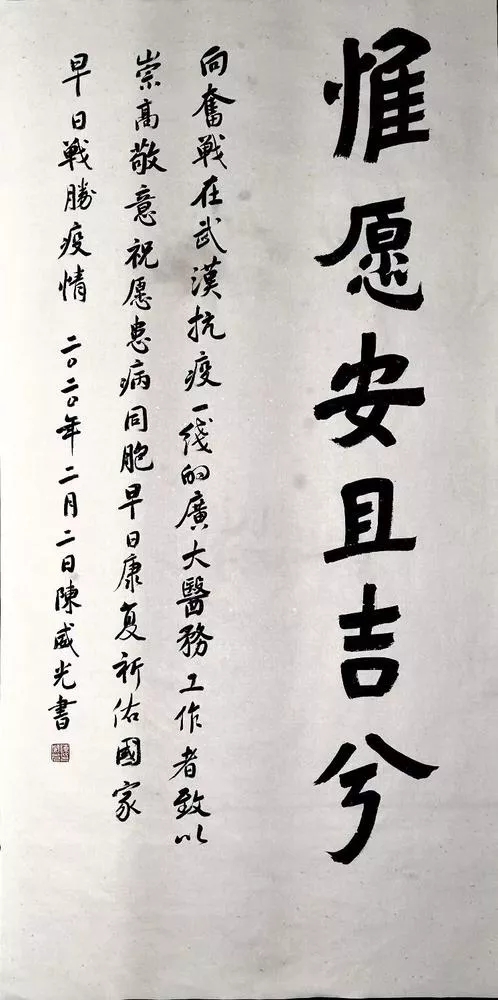 惟愿安且吉兮
向奮戰在武漢抗疫一綫的廣大醫務工作者致以
崇高敬意祝愿患病同胞早日康复祈佑國家
早日戰勝疫情 二〇二〇年二月二日陳威光書